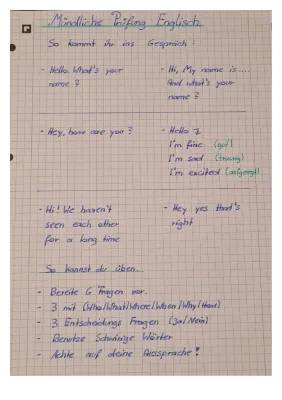 Mündliche Prüfung Englisch
So kommt ihr ins Gespräch:
- Hello. What's your
name?
- Hi, My name is ....
And what's your
name?
- Hey, how are you?
- Hello
I'm fine (gut)
I'm sad (traurig)
I'm excited (aufgeregt)
- Hi! We haven't
seen each other
for a long time
- Hey yes that's
right
So kannst du üben.
- Bereite 6 Fragen vor.
- 3 mit (Who/What/Where/When/Why/How)
- 3 Entscheidungs Fragen (Ja/Nein)
- Benutze Schwierige Wörter
- Achte auf deine Aussprache!